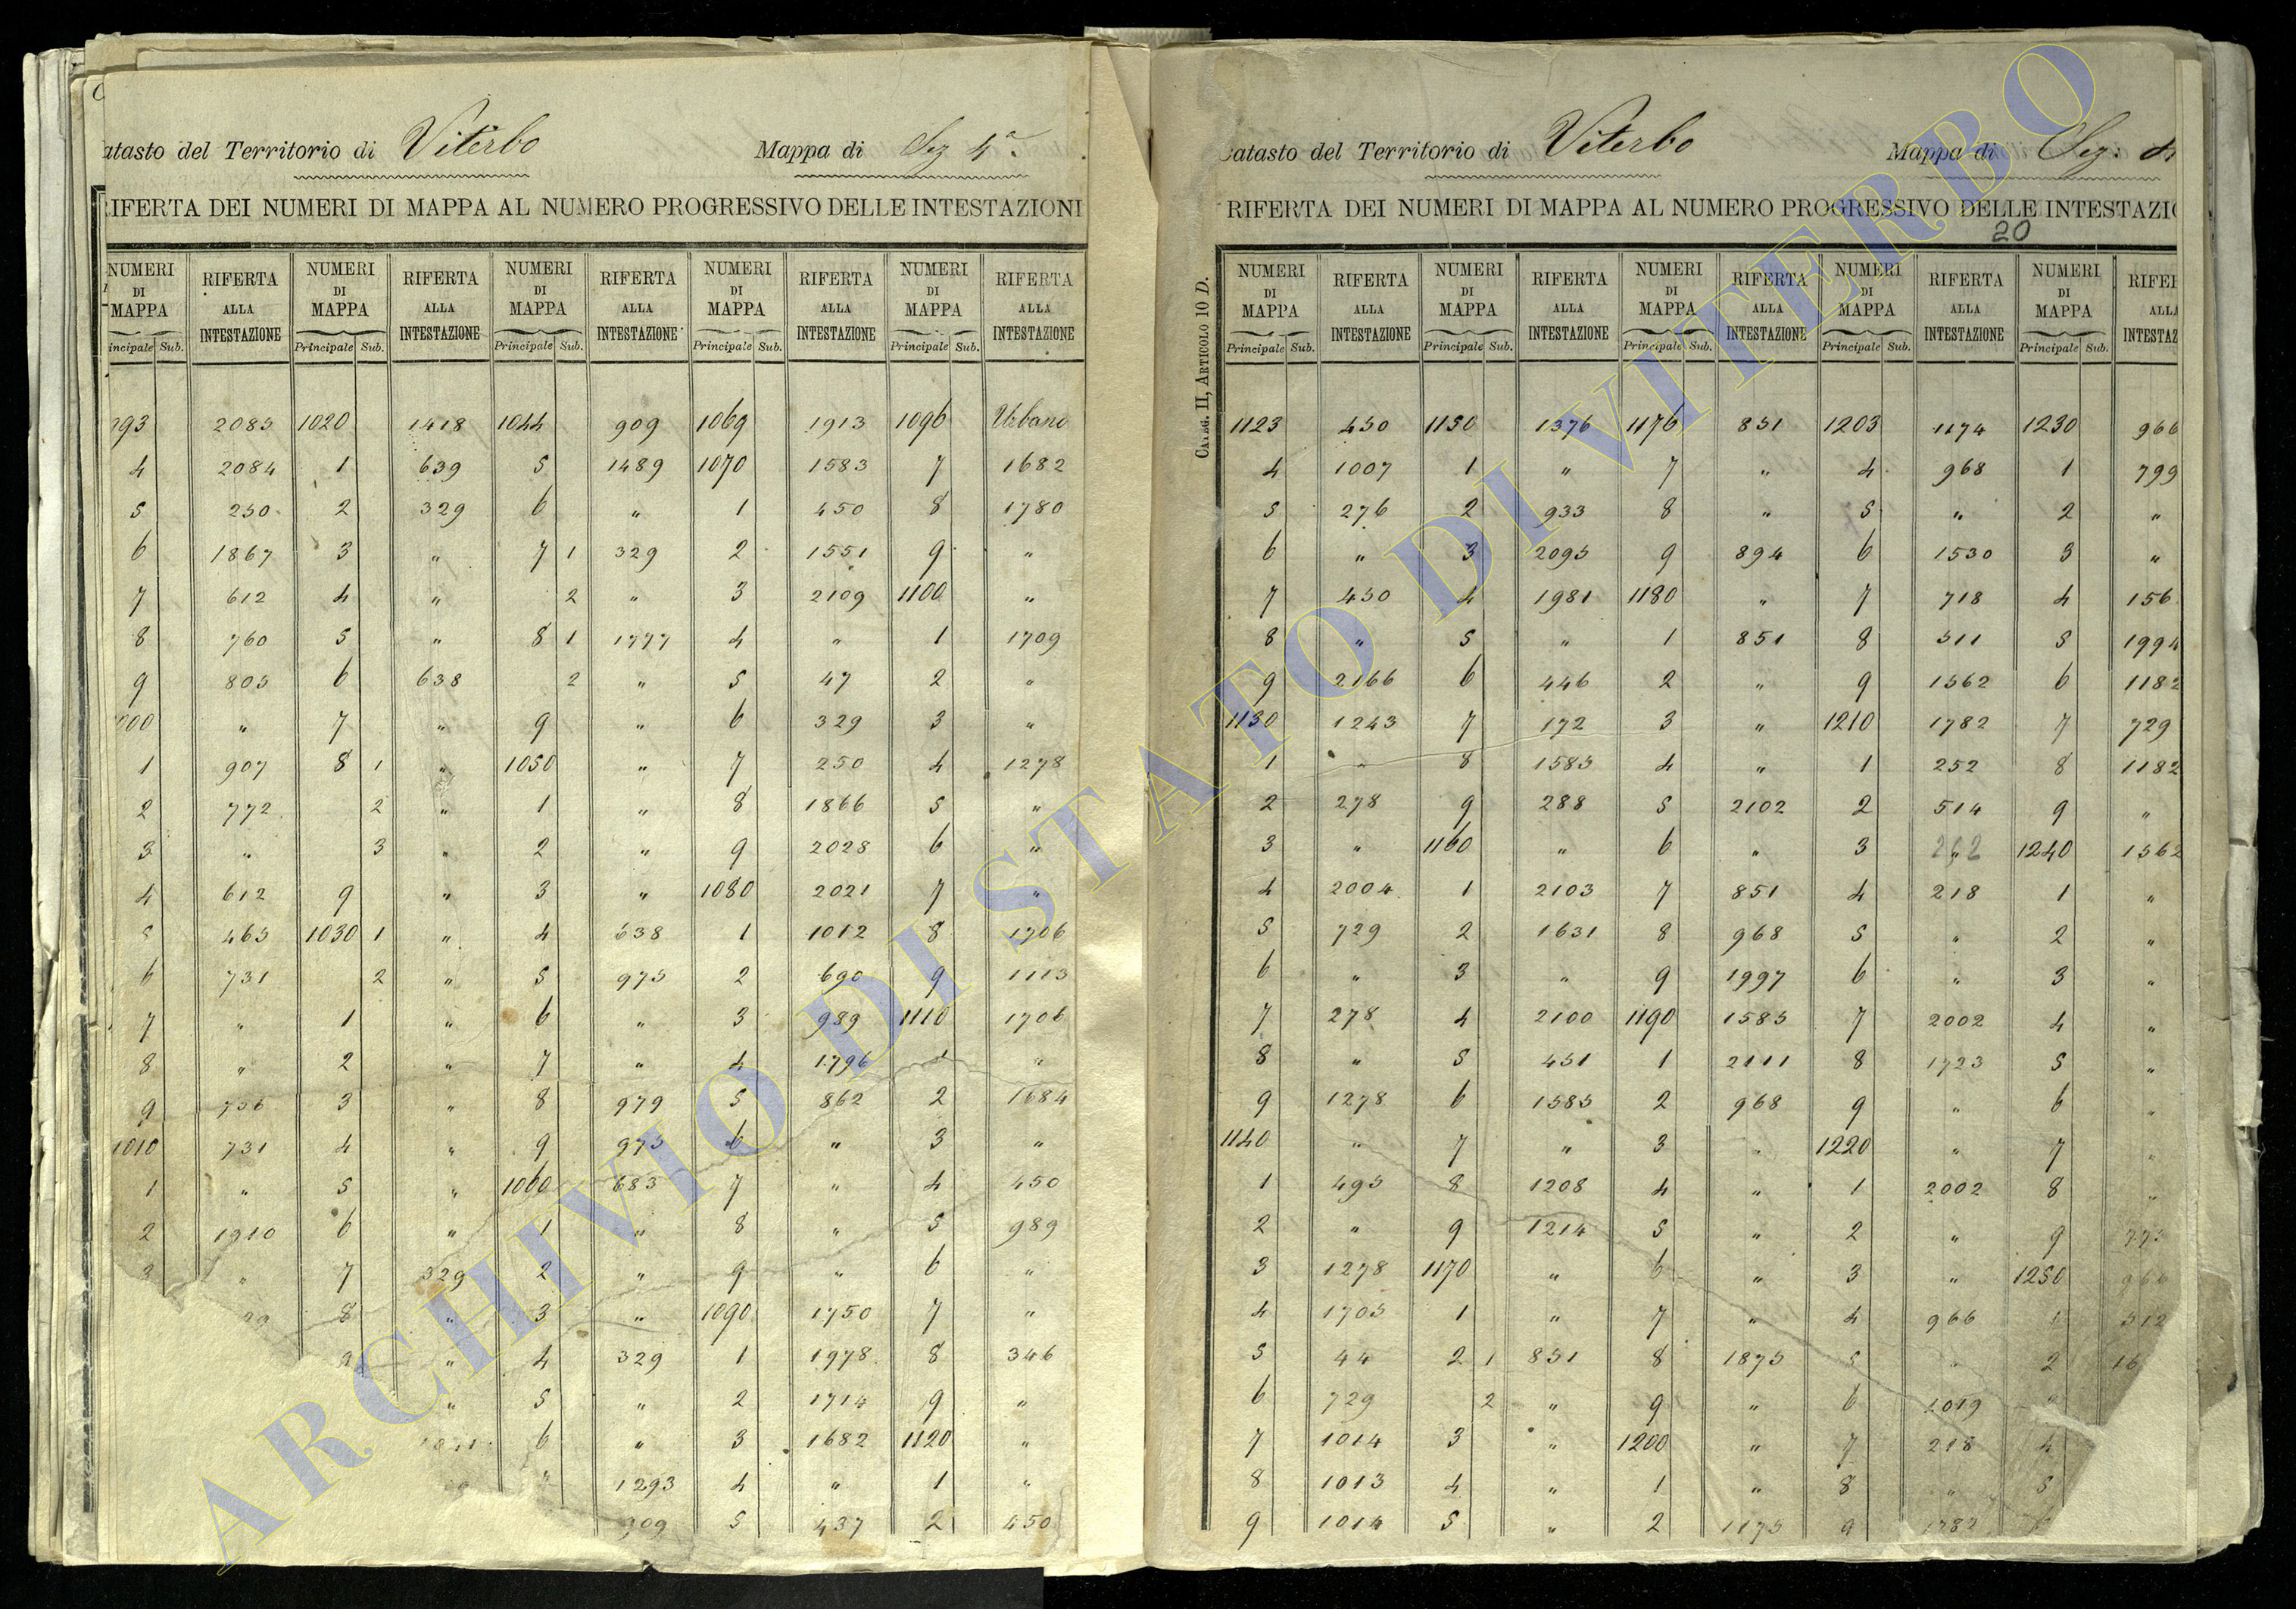 atasto del Territorio di Viterbo Mappa di Sez 4ª
RIFERTA DEI NUMERI DI MAPPA AL NUMERO PROGRESSIVO DELLE INTESTAZIONI
NUMERI DI MAPPA RIFERTA ALLA INTESTAZIONE NUMERI DI MAPPA RIFERTA ALLA INTESTAZIONE NUMERI DI MAPPA RIFERTA ALLA INTESTAZIONE NUMERI DI MAPPA RIFERTA ALLA INTESTAZIONE NUMERI DI MAPPA RIFERTA ALLA INTESTAZIONE
incipale Sub. Principale Sub. Principale Sub. Principale Sub. Principale Sub.
93 2085 1020 1418 1044 909 1069 1913 1096 Urbano
4 2084 1 639 5 1489 1070 1583 7 1682
5 250 2 329 6 " 1 450 8 1780
6 1867 3 " 7 1 329 2 1551 9 "
7 612 4 " 2 " 3 2109 1100 "
8 760 5 " 8 1 1777 4 " 1 1709
9 805 6 638 2 " 5 47 2 "
000 " 7 " 9 " 6 329 3 "
1 907 8 1 " 1050 " 7 250 4 1278
2 772 2 " 1 " 8 1866 5 "
3 " 3 " 2 " 9 2028 6 "
4 612 9 " 3 " 1080 2021 7 "
5 465 1030 1 " 4 638 1 1012 8 1706
6 731 2 " 5 975 2 690 9 1113
7 " 1 " 6 " 3 989 1110 1706
8 " 2 " 7 " 4 1796 1 "
9 756 3 " 8 979 5 862 2 1684
1010 731 4 " 9 975 6 " 3 "
1 " 5 " 1060 685 7 " 4 450
2 1910 6 " 1 " 8 " 5 989
3 " 7 329 2 " 9 " 6 "
8 " 3 " 1090 1750 7 "
9 " 4 329 1 1978 8 346
" 5 " 2 1714 9 "
6 " 3 1682 1120 "
" 1293 4 " 1 "
909 5 437 2 450
Catasto del Territorio di Viterbo Mappa di Sez: 4
RIFERTA DEI NUMERI DI MAPPA AL NUMERO PROGRESSIVO DELLE INTESTAZI
20
CATEG. II, ARTICOLO 10 D.
NUMERI DI MAPPA RIFERTA ALLA INTESTAZIONE NUMERI DI MAPPA RIFERTA ALLA INTESTAZIONE NUMERI DI MAPPA RIFERTA ALLA INTESTAZIONE NUMERI DI MAPPA RIFERTA ALLA INTESTAZIONE NUMERI DI MAPPA RIFER ALLA INTESTAZ
Principale Sub. Principale Sub. Principale Sub. Principale Sub. Principale Sub.
1123 450 1150 1376 1176 851 1203 1174 1230 966
4 1007 1 " 7 " 4 968 1 799
5 276 2 933 8 " 5 " 2 "
6 " 3 2095 9 894 6 1530 3 "
7 450 4 1981 1180 " 7 718 4 156
8 " 5 " 1 851 8 511 5 1994
9 2166 6 446 2 " 9 1562 6 1182
1130 1243 7 172 3 " 1210 1782 7 729
1 " 8 1585 4 " 1 252 8 1182
2 278 9 288 5 2102 2 514 9 "
3 " 1160 " 6 " 3 " 1240 1562
4 2004 1 2103 7 851 4 218 1 "
5 729 2 1631 8 968 5 " 2 "
6 " 3 " 9 1997 6 " 3 "
7 278 4 2100 1190 1585 7 2002 4 "
8 " 5 451 1 2111 8 1723 5 "
9 1278 6 1585 2 968 9 " 6 "
1140 " 7 " 3 " 1220 " 7 "
1 495 8 1208 4 " 1 2002 8 "
2 " 9 1214 5 " 2 " 9
3 1278 1170 " 6 " 3 " 1250 966
4 1705 1 " 7 " 4 966 1 512
5 44 2 1 851 8 1875 5 " 2 16
6 729 2 " 9 " 6 1019
7 1014 3 " 1200 " 7 218 4
8 1013 4 " 1 " 8 " 5
9 1014 5 " 2 1175 9 1782
ARCHIVIO DI STATO DI VITERBO